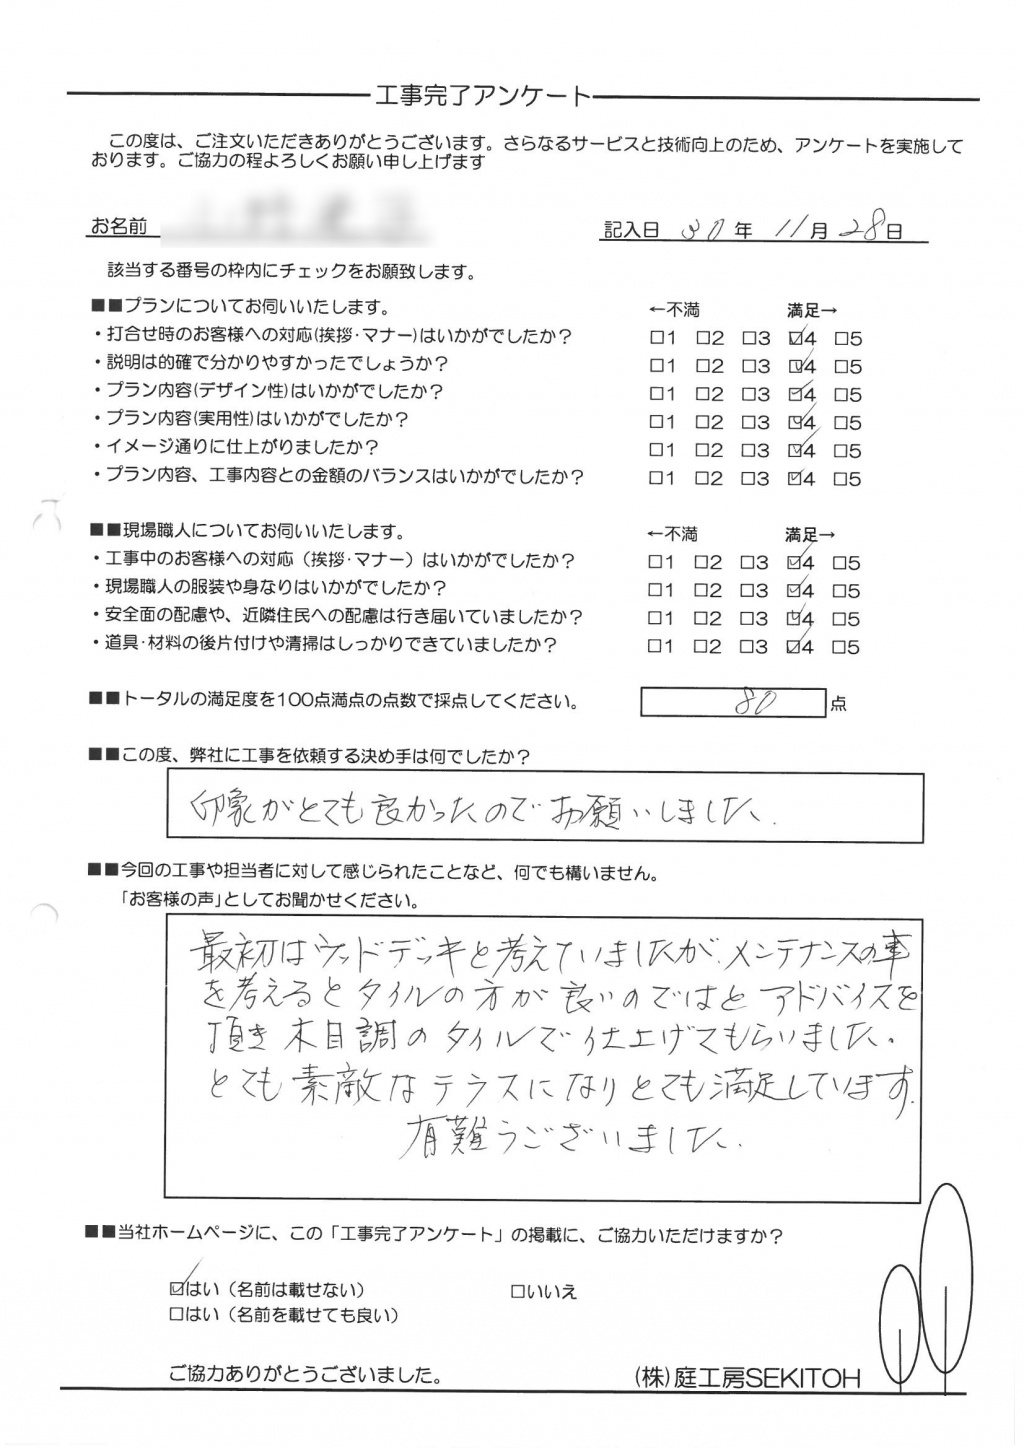 工事完了アンケート
この度は、ご注文いただきありがとうございます。さらなるサービスと技術向上のため、アンケートを実施して
おります。ご協力の程よろしくお願い申し上げます
お名前 記入日 30年 11月 28日
該当する番号の枠内にチェックをお願致します。
■■プランについてお伺いいたします。 ←不満 満足→
・打合せ時のお客様への対応(挨拶・マナー)はいかがでしたか？ □1 □2 □3 ☑4 □5
・説明は的確で分かりやすかったでしょうか？ □1 □2 □3 ☑4 □5
・プラン内容(デザイン性)はいかがでしたか？ □1 □2 □3 ☑4 □5
・プラン内容(実用性)はいかがでしたか？ □1 □2 □3 ☑4 □5
・イメージ通りに仕上がりましたか？ □1 □2 □3 ☑4 □5
・プラン内容、工事内容との金額のバランスはいかがでしたか？ □1 □2 □3 ☑4 □5
■■現場職人についてお伺いいたします。 ←不満 満足→
・工事中のお客様への対応（挨拶・マナー）はいかがでしたか？ □1 □2 □3 ☑4 □5
・現場職人の服装や身なりはいかがでしたか？ □1 □2 □3 ☑4 □5
・安全面の配慮や、近隣住民への配慮は行き届いていましたか？ □1 □2 □3 ☑4 □5
・道具・材料の後片付けや清掃はしっかりできていましたか？ □1 □2 □3 ☑4 □5
■■トータルの満足度を100点満点の点数で採点してください。 80 点
■■この度、弊社に工事を依頼する決め手は何でしたか？
印象がとても良かったのでお願いしました。
■■今回の工事や担当者に対して感じられたことなど、何でも構いません。
「お客様の声」としてお聞かせください。
最初はウッドデッキと考えていましたが、メンテナンスの事
を考えるとタイルの方が良いのではとアドバイスを
頂き木目調のタイルで仕上げてもらいました。
とても素敵なテラスになりとても満足しています。
有難うございました。
■■当社ホームページに、この「工事完了アンケート」の掲載に、ご協力いただけますか？
☑はい（名前は載せない） □いいえ
□はい（名前を載せても良い）
ご協力ありがとうございました。 (株)庭工房SEKITOH